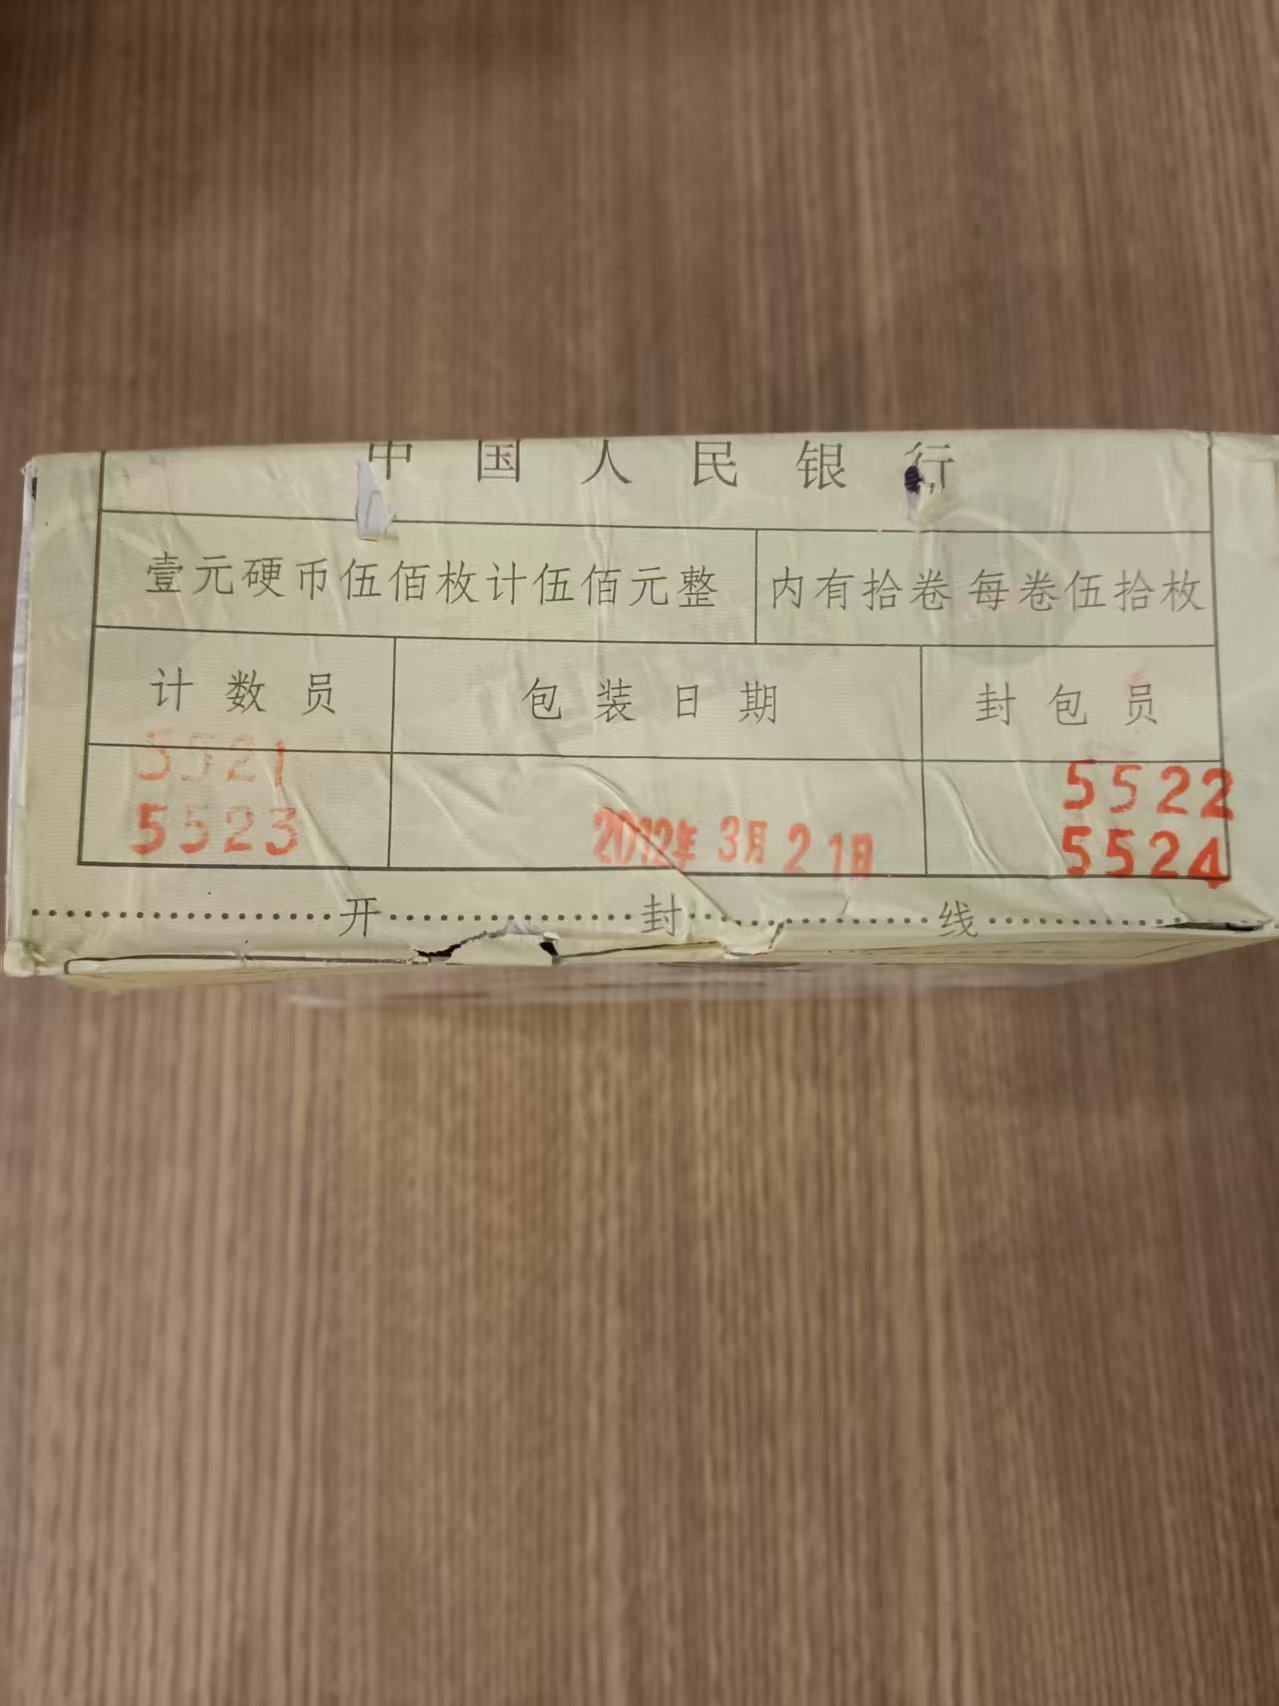 中国人民银行
壹元硬币伍佰枚计伍佰元整 内有拾卷 每卷伍拾枚
计数员 包装日期 封包员
5521 5522
5523 2012年3月21日 5524
开封线